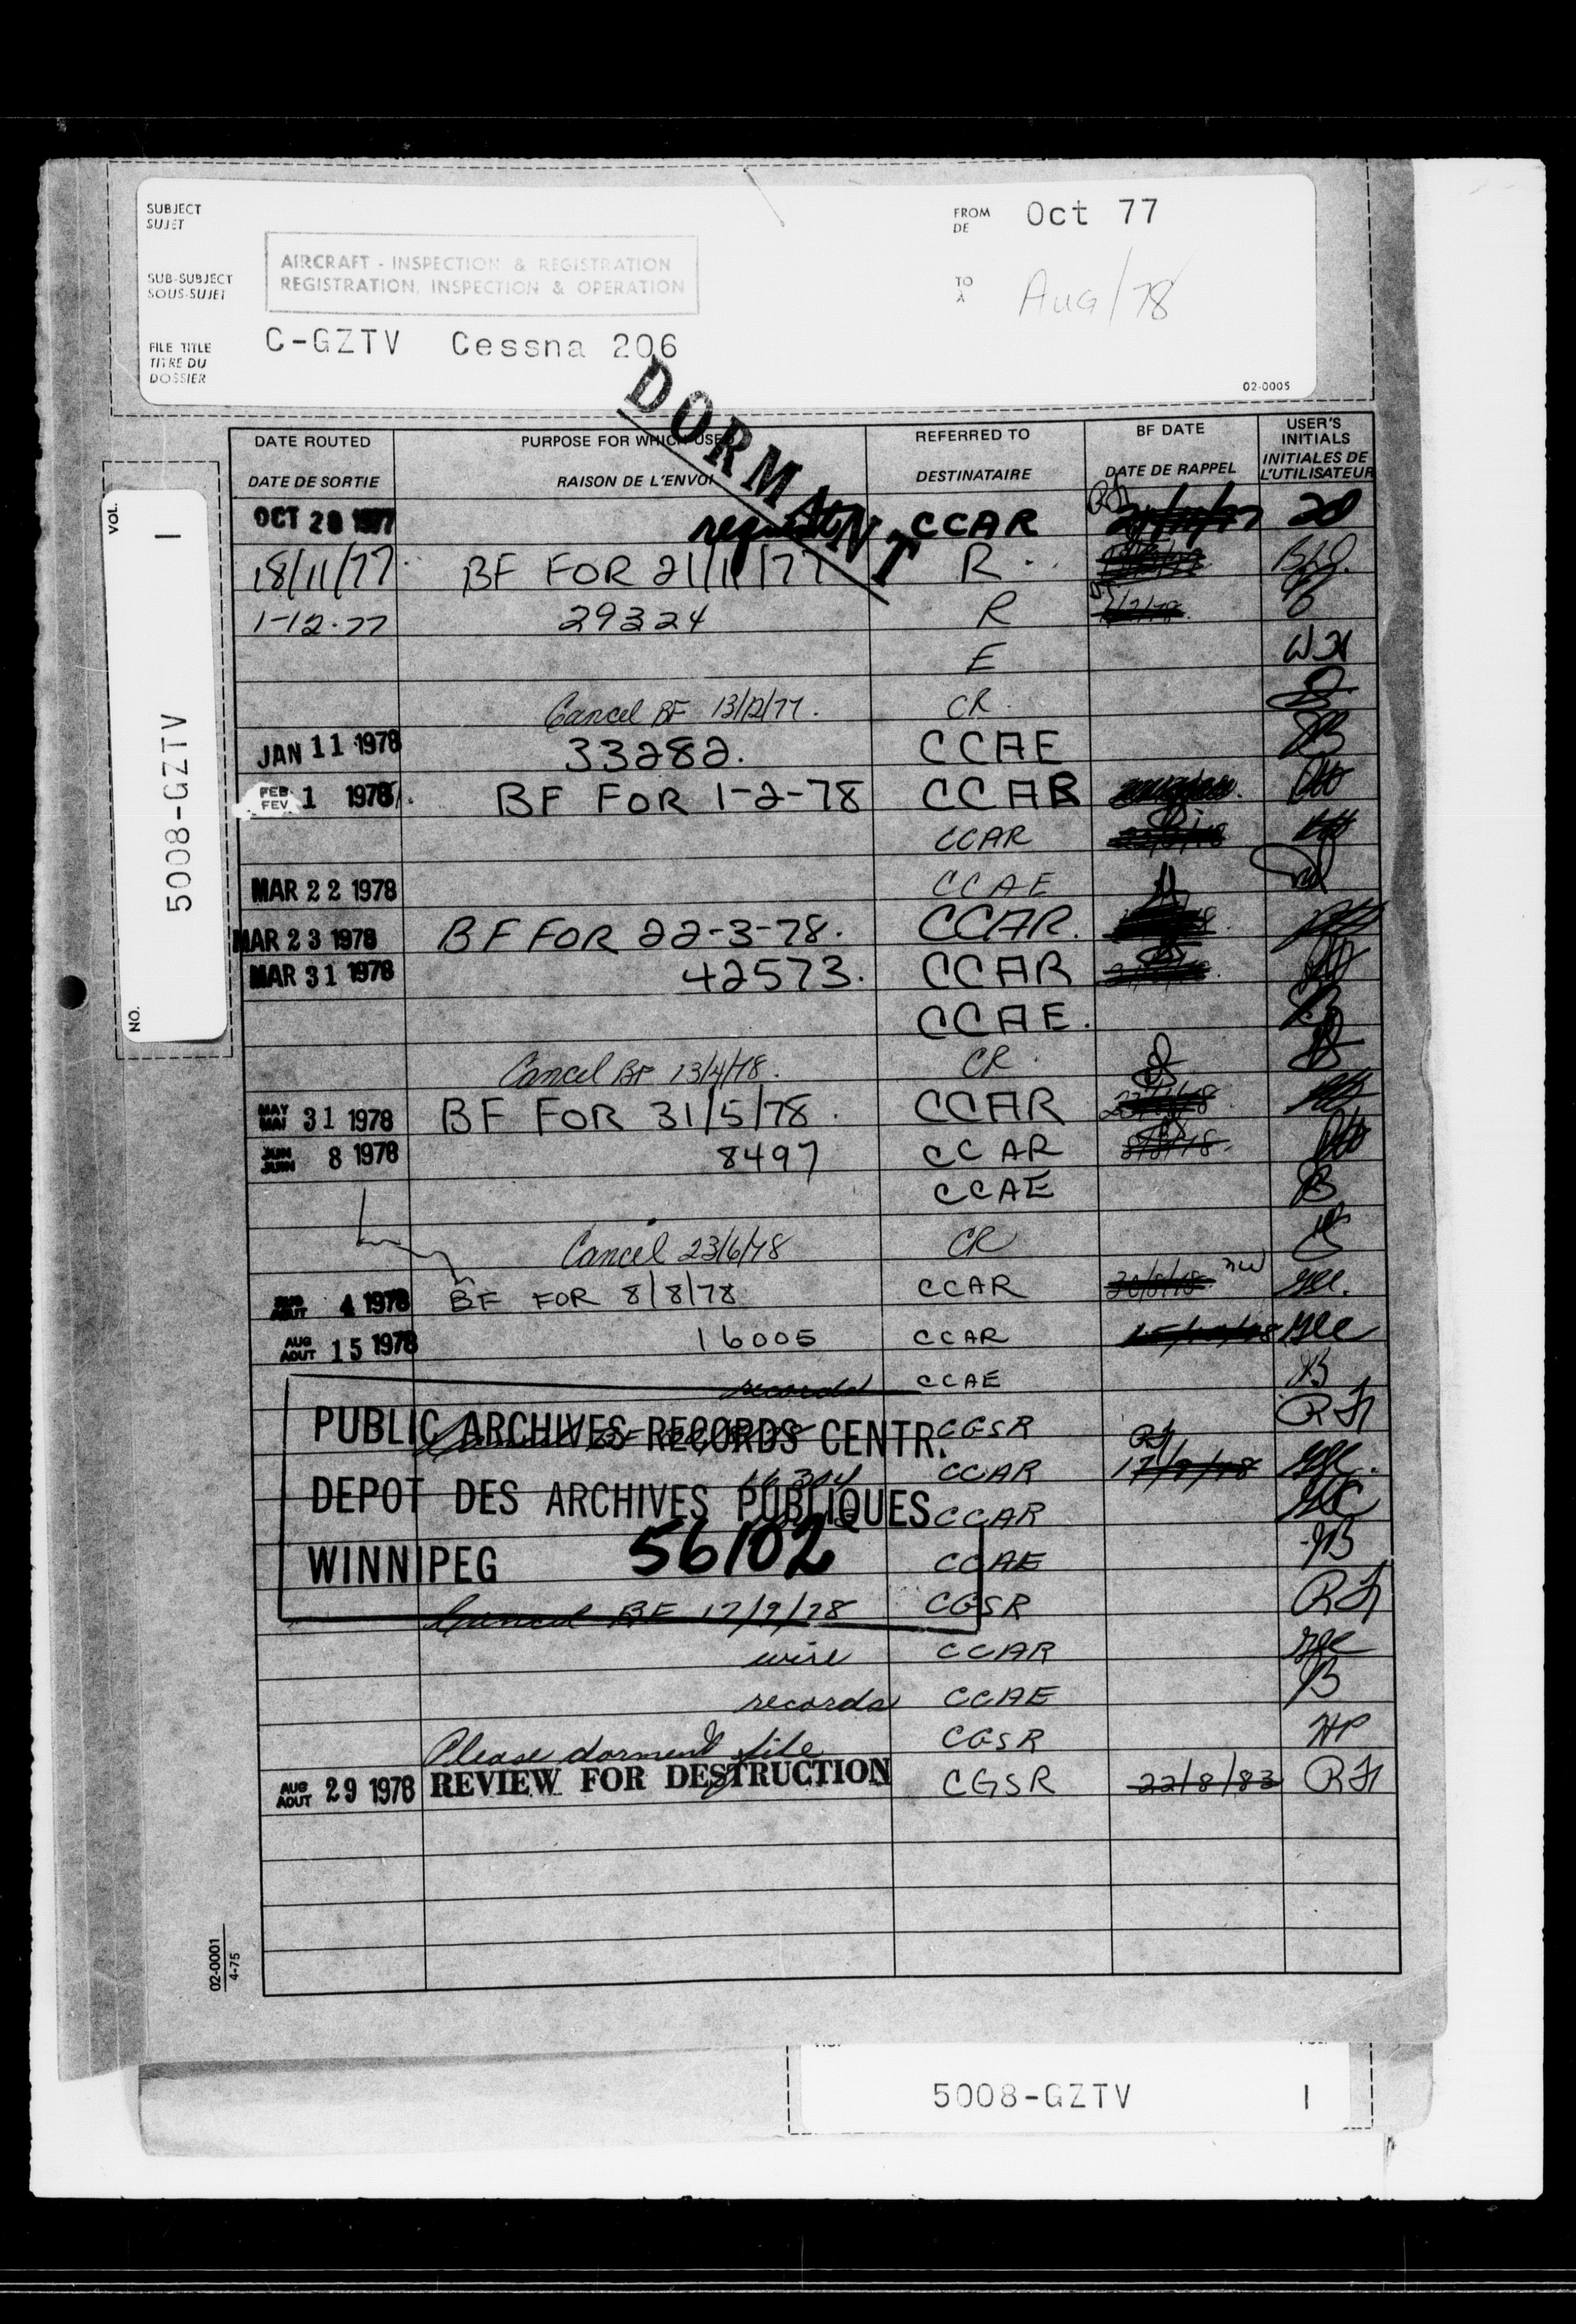 SUBJECT
SUJET
FROM
DE
Oct 77
AIRCRAFT - INSPECTION & REGISTRATION
REGISTRATION, INSPECTION & OPERATION
SUB-SUBJECT
SOUS-SUJET
TO
À
Aug/78
FILE TITLE
TITRE DU
DOSSIER
C-GZTV Cessna 206
02-0005
DORMANT
VOL. 1
NO. 5008-GZTV
DATE ROUTED PURPOSE FOR WHICH USED REFERRED TO BF DATE USER'S INITIALS
DATE DE SORTIE RAISON DE L'ENVOI DESTINATAIRE DATE DE RAPPEL INITIALES DE L'UTILISATEUR
OCT 28 1977 request CCAR
18/11/77 BF FOR 21/11/77 R
1-12-77 29324 R
E
Cancel BF 13/12/77. CR
JAN 11 1978 33282. CCAE
FEB FEV 1 1978 BF FOR 1-2-78 CCAR
CCAR
MAR 22 1978 CCAE
MAR 23 1978 BF FOR 22-3-78. CCAR.
MAR 31 1978 42573. CCAR
CCAE.
Cancel BF 13/4/78. CR
MAY MAI 31 1978 BF FOR 31/5/78. CCAR
JUN JUIN 8 1978 8497 CCAR
CCAE B
Cancel 23/6/78 CR
AUG AOUT 4 1978 BF FOR 8/8/78 CCAR
AUG AOUT 15 1978 16005 CCAR
records CCAE
CGSR
CCAR 17/9/78
CCAR
CCAE
PUBLIC ARCHIVES RECORDS CENTR.
DEPOT DES ARCHIVES PUBLIQUES
WINNIPEG 56102
Cancel BF 17/9/78 CGSR
wire CCAR
records CCAE
Please dorment file CGSR HP
AUG AOUT 29 1978 REVIEW FOR DESTRUCTION CGSR 22/8/83
02-0001
4-75
5008-GZTV 1